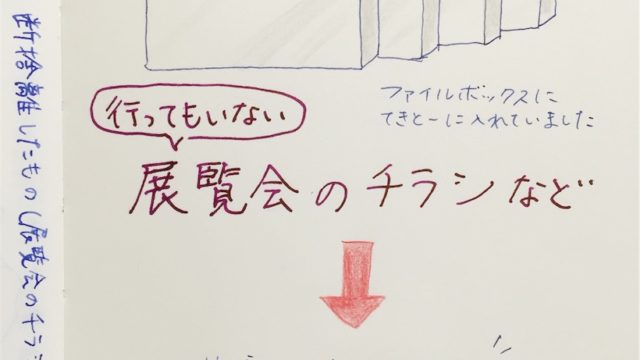 断捨離したもの(展覧会のチラシ
ファイルボックスに
てきとーに入れていました
行ってもいない
展覧会のチラシなど